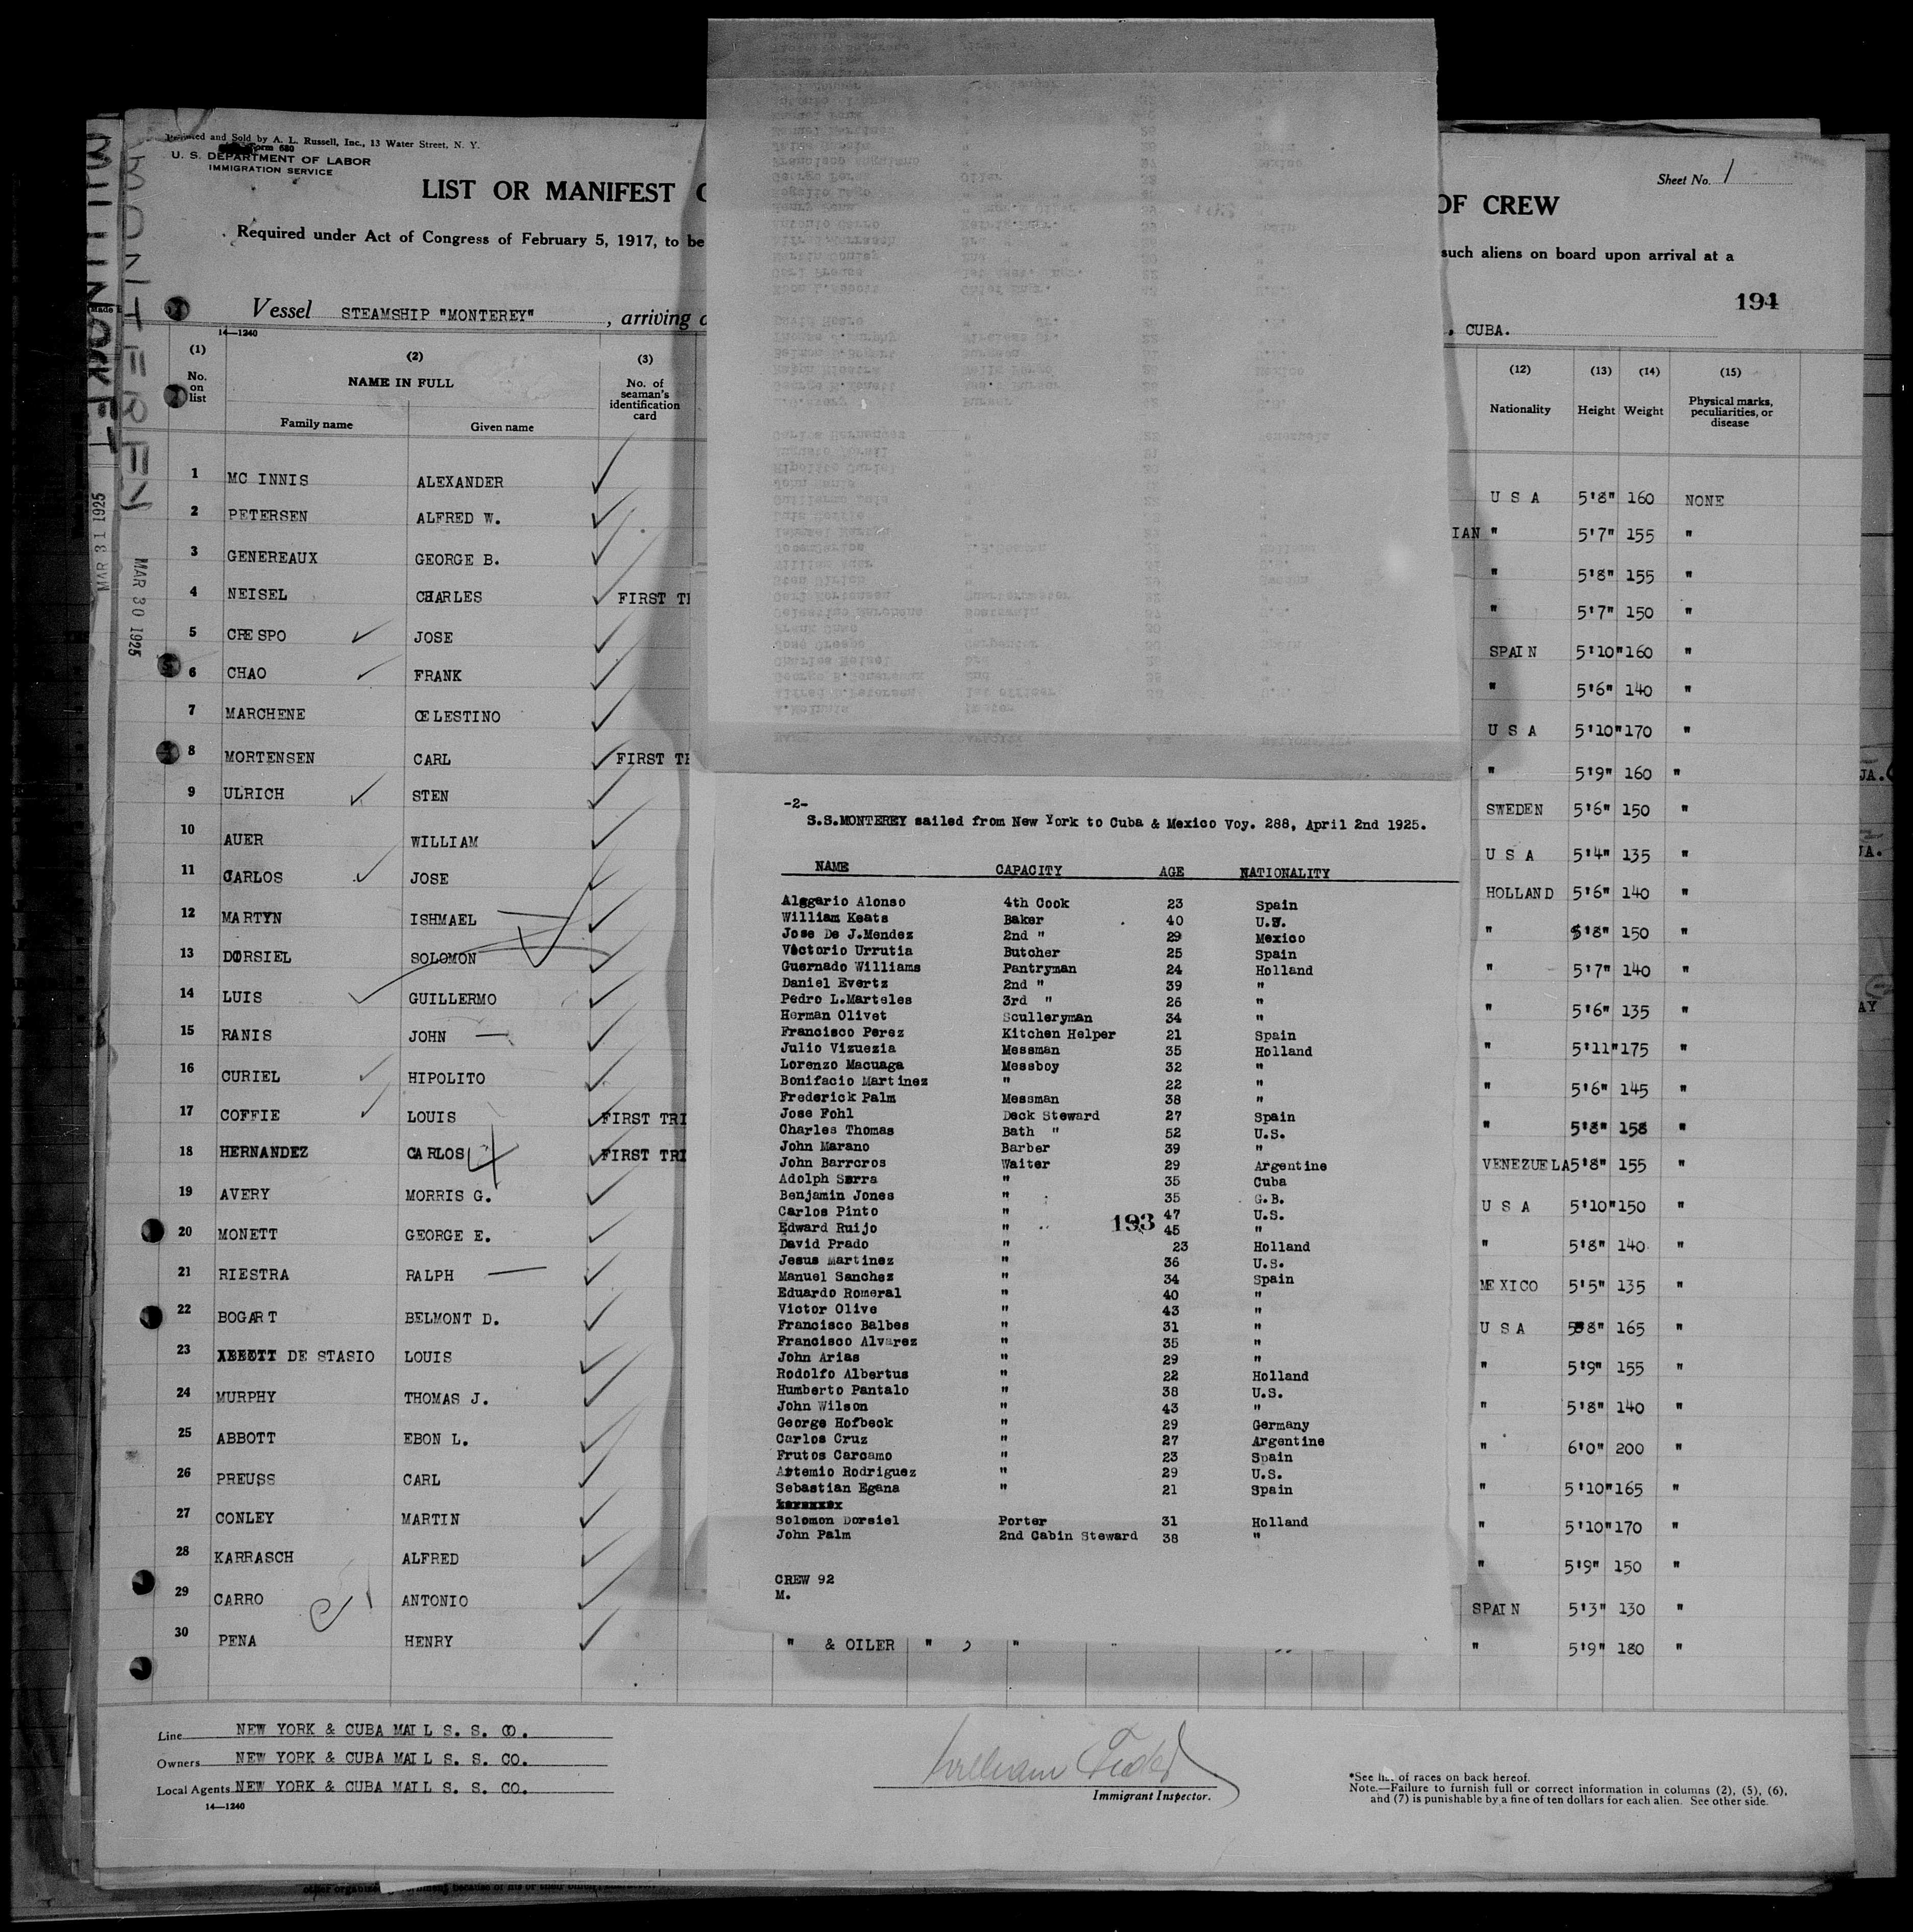 Printed and Sold by A. L. Russell, Inc., 13 Water Street, N. Y.
Form 680
U. S. DEPARTMENT OF LABOR
IMMIGRATION SERVICE
Sheet No. 1
LIST OR MANIFEST
OF CREW
Required under Act of Congress of February 5, 1917, to be
such aliens on board upon arrival at a
194
Vessel STEAMSHIP "MONTEREY" , arriving
, CUBA.
14—1240
MONTEREY
MAR 31 1925
MAR 30 1925
(1) (2) (3) (12) (13) (14) (15)
No. on list NAME IN FULL No. of seaman's identification card Nationality Height Weight Physical marks, peculiarities, or disease
Family name Given name
1 MC INNIS ALEXANDER U S A 5'8" 160 NONE
2 PETERSEN ALFRED W. IAN " 5'7" 155 "
3 GENEREAUX GEORGE B. " 5'8" 155 "
4 NEISEL CHARLES FIRST " 5'7" 150 "
5 CRESPO JOSE SPAIN 5'10" 160 "
6 CHAO FRANK " 5'6" 140 "
7 MARCHENE CELESTINO U S A 5'10" 170 "
8 MORTENSEN CARL FIRST " 5'9" 160 "
9 ULRICH STEN SWEDEN 5'6" 150 "
10 AUER WILLIAM U S A 5'4" 135 "
11 CARLOS JOSE HOLLAND 5'6" 140 "
12 MARTYN ISHMAEL " 5'8" 150 "
13 DORSIEL SOLOMON " 5'7" 140 "
14 LUIS GUILLERMO " 5'6" 135 "
15 RANIS JOHN " 5'11" 175 "
16 CURIEL HIPOLITO " 5'6" 145 "
17 COFFIE LOUIS FIRST TRI " 5'8" 158 "
18 HERNANDEZ CARLOS FIRST TRI VENEZUELA 5'8" 155 "
19 AVERY MORRIS G. U S A 5'10" 150 "
20 MONETT GEORGE E. " 5'8" 140 "
21 RIESTRA RALPH MEXICO 5'5" 135 "
22 BOGART BELMONT D. U S A 5'8" 165 "
23 DE STASIO LOUIS " 5'9" 155 "
24 MURPHY THOMAS J. " 5'8" 140 "
25 ABBOTT EBON L. " 6'0" 200 "
26 PREUSS CARL " 5'10" 165 "
27 CONLEY MARTIN " 5'10" 170 "
28 KARRASCH ALFRED " 5'9" 150 "
29 CARRO ANTONIO SPAIN 5'3" 130 "
30 PENA HENRY " & OILER " " " 5'9" 180 "
-2-
S.S.MONTEREY sailed from New York to Cuba & Mexico Voy. 288, April 2nd 1925.
NAME CAPACITY AGE NATIONALITY
Alggario Alonso 4th Cook 23 Spain
William Keats Baker 40 U.S.
Jose De J.Mendez 2nd " 29 Mexico
Victorio Urrutia Butcher 25 Spain
Guernado Williams Pantryman 24 Holland
Daniel Evertz 2nd " 39 "
Pedro L.Marteles 3rd " 26 "
Herman Olivet Sculleryman 34 "
Francisco Perez Kitchen Helper 21 Spain
Julio Vizuezia Messman 35 Holland
Lorenzo Macuaga Messboy 32 "
Bonifacio Martinez " 22 "
Frederick Palm Messman 38 "
Jose Fohl Deck Steward 27 Spain
Charles Thomas Bath " 52 U.S.
John Marano Barber 39 "
John Barroros Waiter 29 Argentine
Adolph Serra " 35 Cuba
Benjamin Jones " 35 G.B.
Carlos Pinto " 47 U.S.
Edward Ruijo " 45 "
193
David Prado " 23 Holland
Jesus Martinez " 36 U.S.
Manuel Sanchez " 34 Spain
Eduardo Romeral " 40 "
Victor Olive " 43 "
Francisco Balbes " 31 "
Francisco Alvarez " 35 "
John Arias " 29 "
Rodolfo Albertus " 22 Holland
Humberto Pantalo " 38 U.S.
John Wilson " 43 "
George Hofbeck " 29 Germany
Carlos Cruz " 27 Argentine
Frutos Carcamo " 23 Spain
Artemio Rodriguez " 29 U.S.
Sebastian Egana " 21 Spain
Solomon Dorsiel Porter 31 Holland
John Palm 2nd Cabin Steward 38 "
CREW 92
M.
Line NEW YORK & CUBA MAIL S. S. CO.
Owners NEW YORK & CUBA MAIL S. S. CO.
Local Agents NEW YORK & CUBA MAIL S. S. CO.
14—1240
William
Immigrant Inspector.
*See list of races on back hereof.
Note.—Failure to furnish full or correct information in columns (2), (5), (6),
and (7) is punishable by a fine of ten dollars for each alien. See other side.